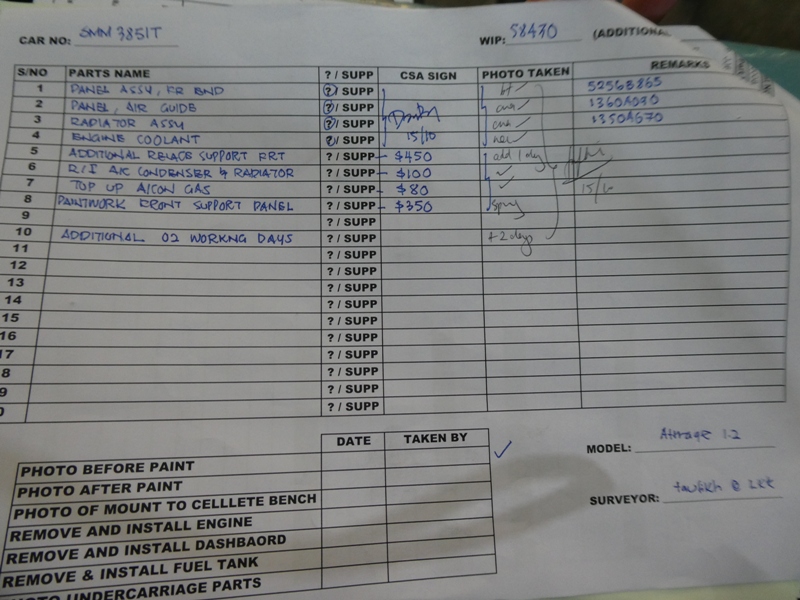 CAR NO: SMM 3851T WIP: 58470 (ADDITIONAL
S/NO PARTS NAME ? / SUPP CSA SIGN PHOTO TAKEN REMARKS
1 PANEL ASSY, FR END ? / SUPP bt ✓ 5256B865
2 PANEL, AIR GUIDE ? / SUPP ✓ 1360A090
3 RADIATOR ASSY ? / SUPP ✓ 1350A670
4 ENGINE COOLANT ? / SUPP 15/10 new ✓
5 ADDITIONAL RELACE SUPPORT FRT ? / SUPP - $450 add 1 day
6 R/I A/C CONDENSER & RADIATOR ? / SUPP - $100 ✓
7 TOP UP A/CON GAS ? / SUPP - $80 ✓
8 PAINTWORK FRONT SUPPORT PANEL ? / SUPP - $350 spray
9 ? / SUPP
10 ADDITIONAL 02 WORKNG DAYS ? / SUPP +2 days
11 ? / SUPP
12 ? / SUPP
13 ? / SUPP
14 ? / SUPP
15 ? / SUPP
16 ? / SUPP
17 ? / SUPP
8 ? / SUPP
9 ? / SUPP
0 ? / SUPP
DATE TAKEN BY
PHOTO BEFORE PAINT ✓
MODEL: Attrage 1.2
PHOTO AFTER PAINT
PHOTO OF MOUNT TO CELLLETE BENCH
SURVEYOR:
REMOVE AND INSTALL ENGINE
REMOVE AND INSTALL DASHBAORD
REMOVE & INSTALL FUEL TANK
OTO UNDERCARRIAGE PARTS